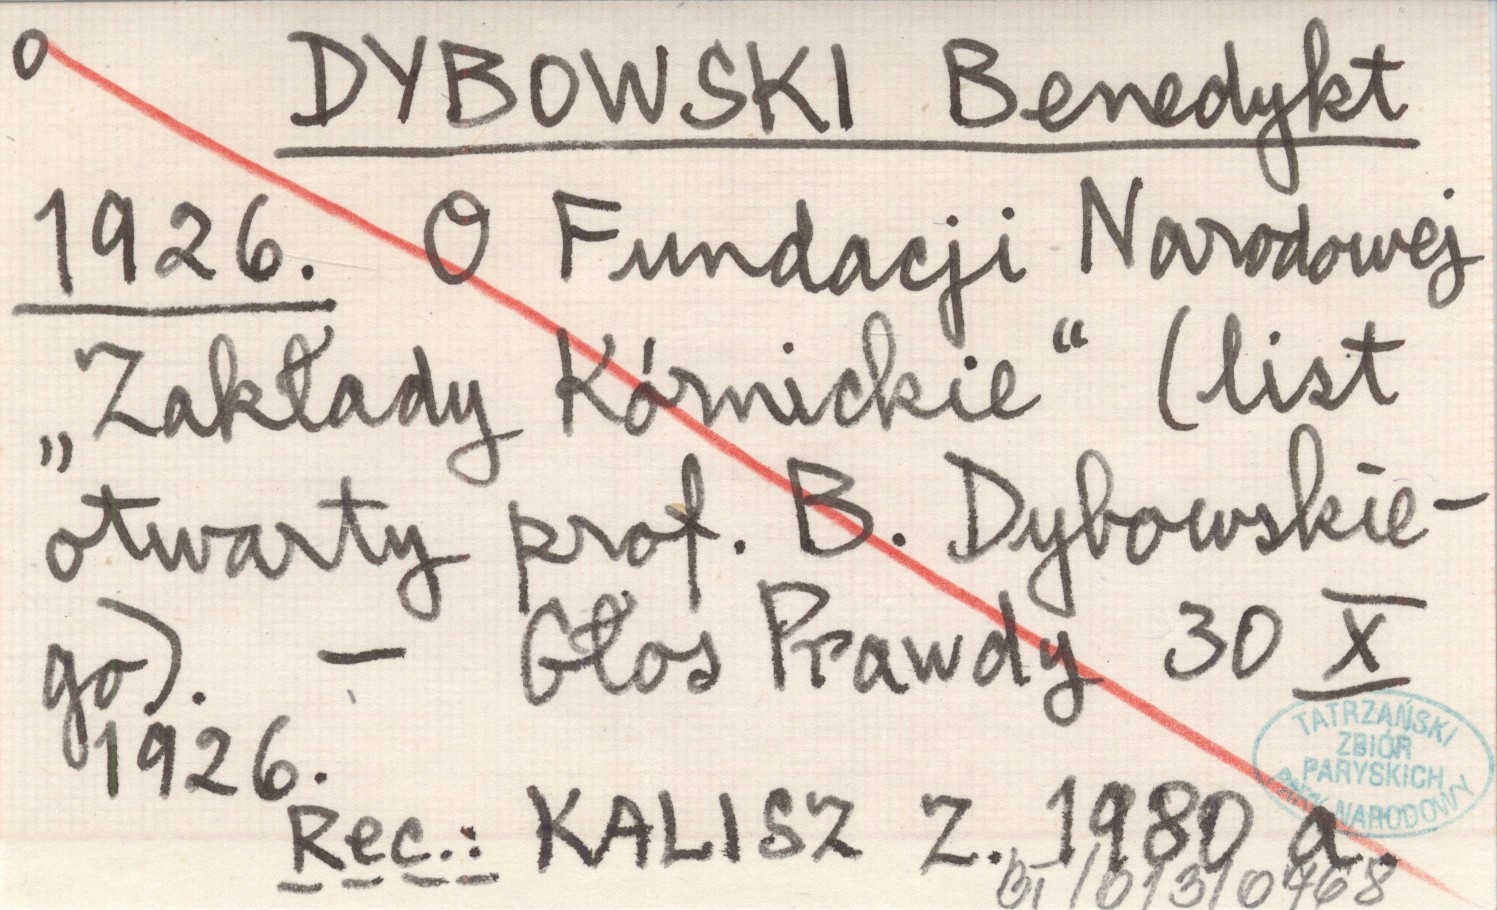 o DYBOWSKI Benedykt
1926. O Fundacji Narodowej
„Zakłady Kórnickie“ (list
otwarty prof. B. Dybowskie-
go). — Głos Prawdy 30 X
1926.
TATRZAŃSKI
ZBIÓR
PARYSKICH
NARODOWY
Rec.: KALISZ Z. 1980 a.
BT/013/0468